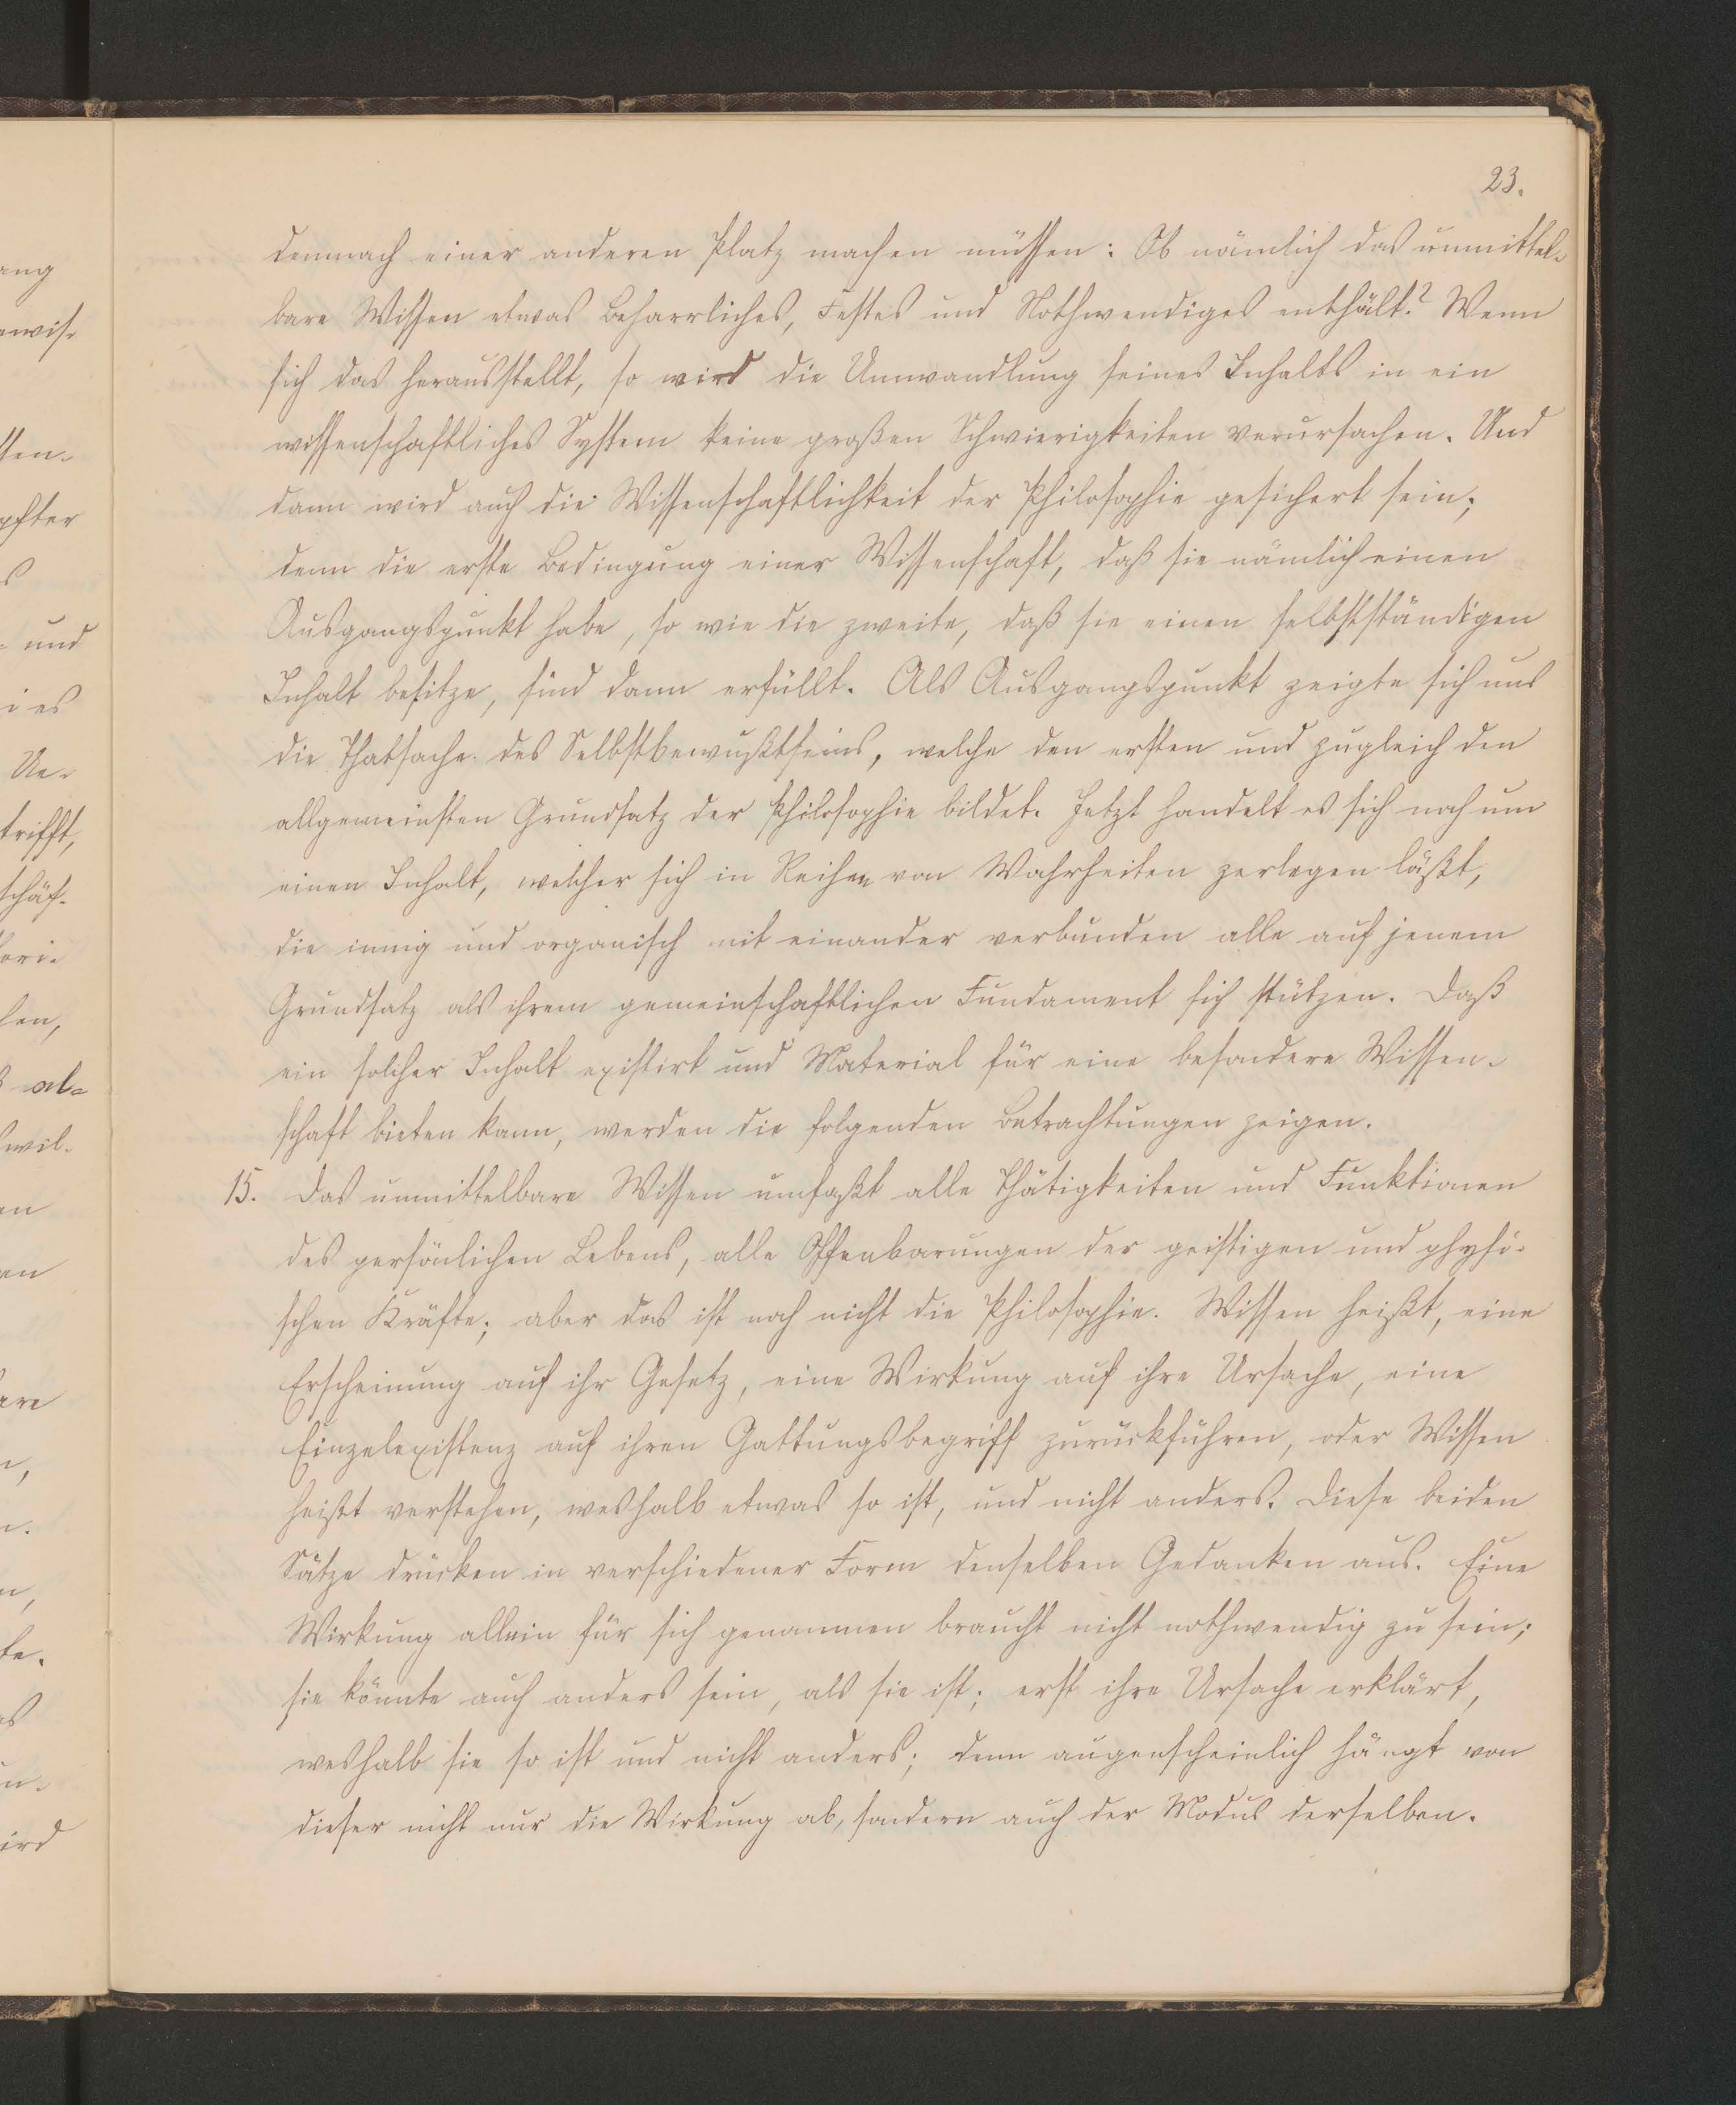 23.
demnach einer anderen Platz machen müssen: Ob nämlich das unmittel-
bare Wissen etwas Beharrliches, Festes und Nothwendiges enthält? Wenn
sich das herausstellt, so wird die Umwandlung seines Inhalts in ein
wissenschaftliches System keine großen Schwierigkeiten verursachen. Und
dann wird auch die Wissenschaftlichkeit der Philosophie gesichert sein;
denn die erste Bedingung einer Wissenschaft, daß sie nämlich einen
Ausgangspunkt habe, so wie die zweite, daß sie einen selbstständigen
Inhalt besitze, sind dann erfüllt. Als Ausgangspunkt zeigte sich uns
die Thatsache des Selbstbewußtseins, welche den ersten und zugleich den
allgemeinsten Grundsatz der Philosophie bildet. Jetzt handelt es sich noch um
einen Inhalt, welcher sich in Reihen von Wahrheiten zerlegen läßt,
die innig und organisch mit einander verbunden alle auf jenem
Grundsatz als ihrem gemeinschaftlichen Fundament sich stützen. Daß
ein solcher Inhalt existirt und Material für eine besondere Wissen-
schaft bieten kann, werden die folgenden Betrachtungen zeigen.
15. Das unmittelbare Wissen umfaßt alle Thätigkeiten und Funktionen
des persönlichen Lebens, alle Offenbarungen der geistigen und physi-
schen Kräfte; aber das ist noch nicht die Philosophie. Wissen heißt, eine
Erscheinung auf ihr Gesetz, eine Wirkung auf ihre Ursache, eine
Einzelexistenz auf ihren Gattungsbegriff zurückführen, oder Wissen
heißt verstehen, weshalb etwas so ist, und nicht anders. Diese beiden
Sätze drücken in verschiedener Form denselben Gedanken aus. Eine
Wirkung allein für sich genommen braucht nicht nothwendig zu sein;
sie könnte auch anders sein, als sie ist; erst ihre Ursache erklärt,
weshalb sie so ist und nicht anders; denn augenscheinlich hängt von
dieser nicht nur die Wirkung ab, sondern auch der Modus derselben.